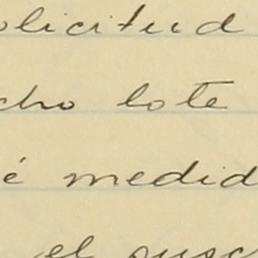 olicitud
cho lote
é medid
el susc